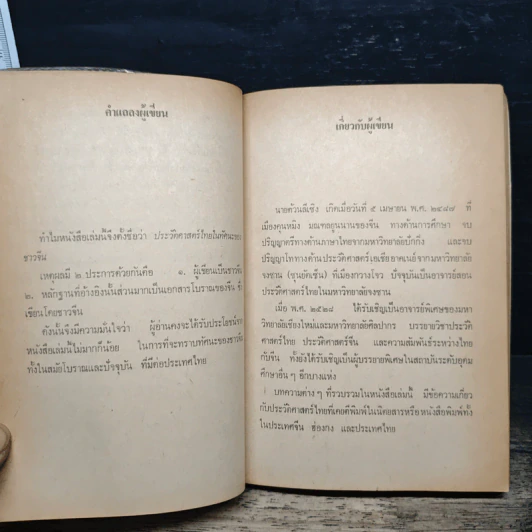 คำแถลงผู้เขียน
ทำไมหนังสือเล่มนี้จึงตั้งชื่อว่า ประวัติศาสตร์ไทยในทัศนะของ
ชาวจีน
เหตุผลมี ๒ ประการด้วยกันคือ ๑. ผู้เขียนเป็นชาวจีน
๒. หลักฐานที่อ้างอิงนั้นส่วนมากเป็นเอกสารโบราณของจีน ซึ่ง
เขียนโดยชาวจีน
ดังนั้นจึงมีความมั่นใจว่า ผู้อ่านคงจะได้รับประโยชน์จาก
หนังสือเล่มนี้ไม่มากก็น้อย ในการที่จะทราบทัศนะของชาวจีน
ทั้งในสมัยโบราณและปัจจุบัน ที่มีต่อประเทศไทย
เกี่ยวกับผู้เขียน
นายต้วนลีเซิง เกิดเมื่อวันที่ ๕ เมษายน พ.ศ. ๒๔๘๗ ที่
เมืองคุนหมิง มณฑลยูนนานของจีน ทางด้านการศึกษา จบ
ปริญญาตรีทางด้านภาษาไทยจากมหาวิทยาลัยปักกิ่ง และจบ
ปริญญาโททางด้านประวัติศาสตร์เอเชียอาคเนย์จากมหาวิทยาลัย
จงซาน (ซุนยัดเซ็น) ที่เมืองกวางโจว ปัจจุบันเป็นอาจารย์สอน
ประวัติศาสตร์ไทยในมหาวิทยาลัยจงซาน
เมื่อ พ.ศ. ๒๕๒๘ ได้รับเชิญเป็นอาจารย์พิเศษของมหา
วิทยาลัยเชียงใหม่และมหาวิทยาลัยศิลปากร บรรยายวิชาประวั
ติศาสตร์ไทย ประวัติศาสตร์จีน และความสัมพันธ์ระหว่างไทย
กับจีน ทั้งยังได้รับเชิญเป็นผู้บรรยายพิเศษในสถาบันระดับอุดม
ศึกษาอื่น ๆ อีกบางแห่ง
บทความต่าง ๆ ที่รวบรวมในหนังสือเล่มนี้ มีข้อความเกี่ยว
กับประวัติศาสตร์ไทยที่เคยตีพิมพ์ในนิตยสารหรือหนังสือพิมพ์ทั้ง
ในประเทศจีน ฮ่องกง และประเทศไทย